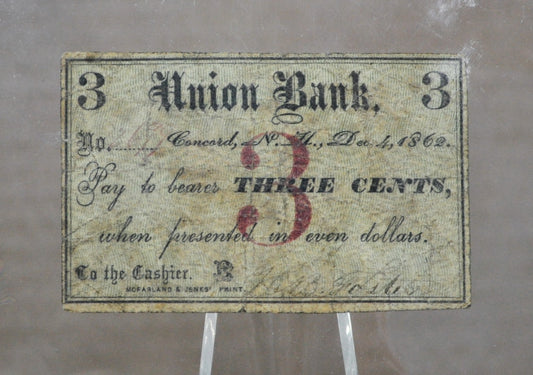 3 Union Bank. 3
No. Concord, N. H., Dec. 4, 1862.
Pay to bearer THREE CENTS,
3
when presented in even dollars.
To the Cashier.
McFARLAND & JENKS' PRINT.